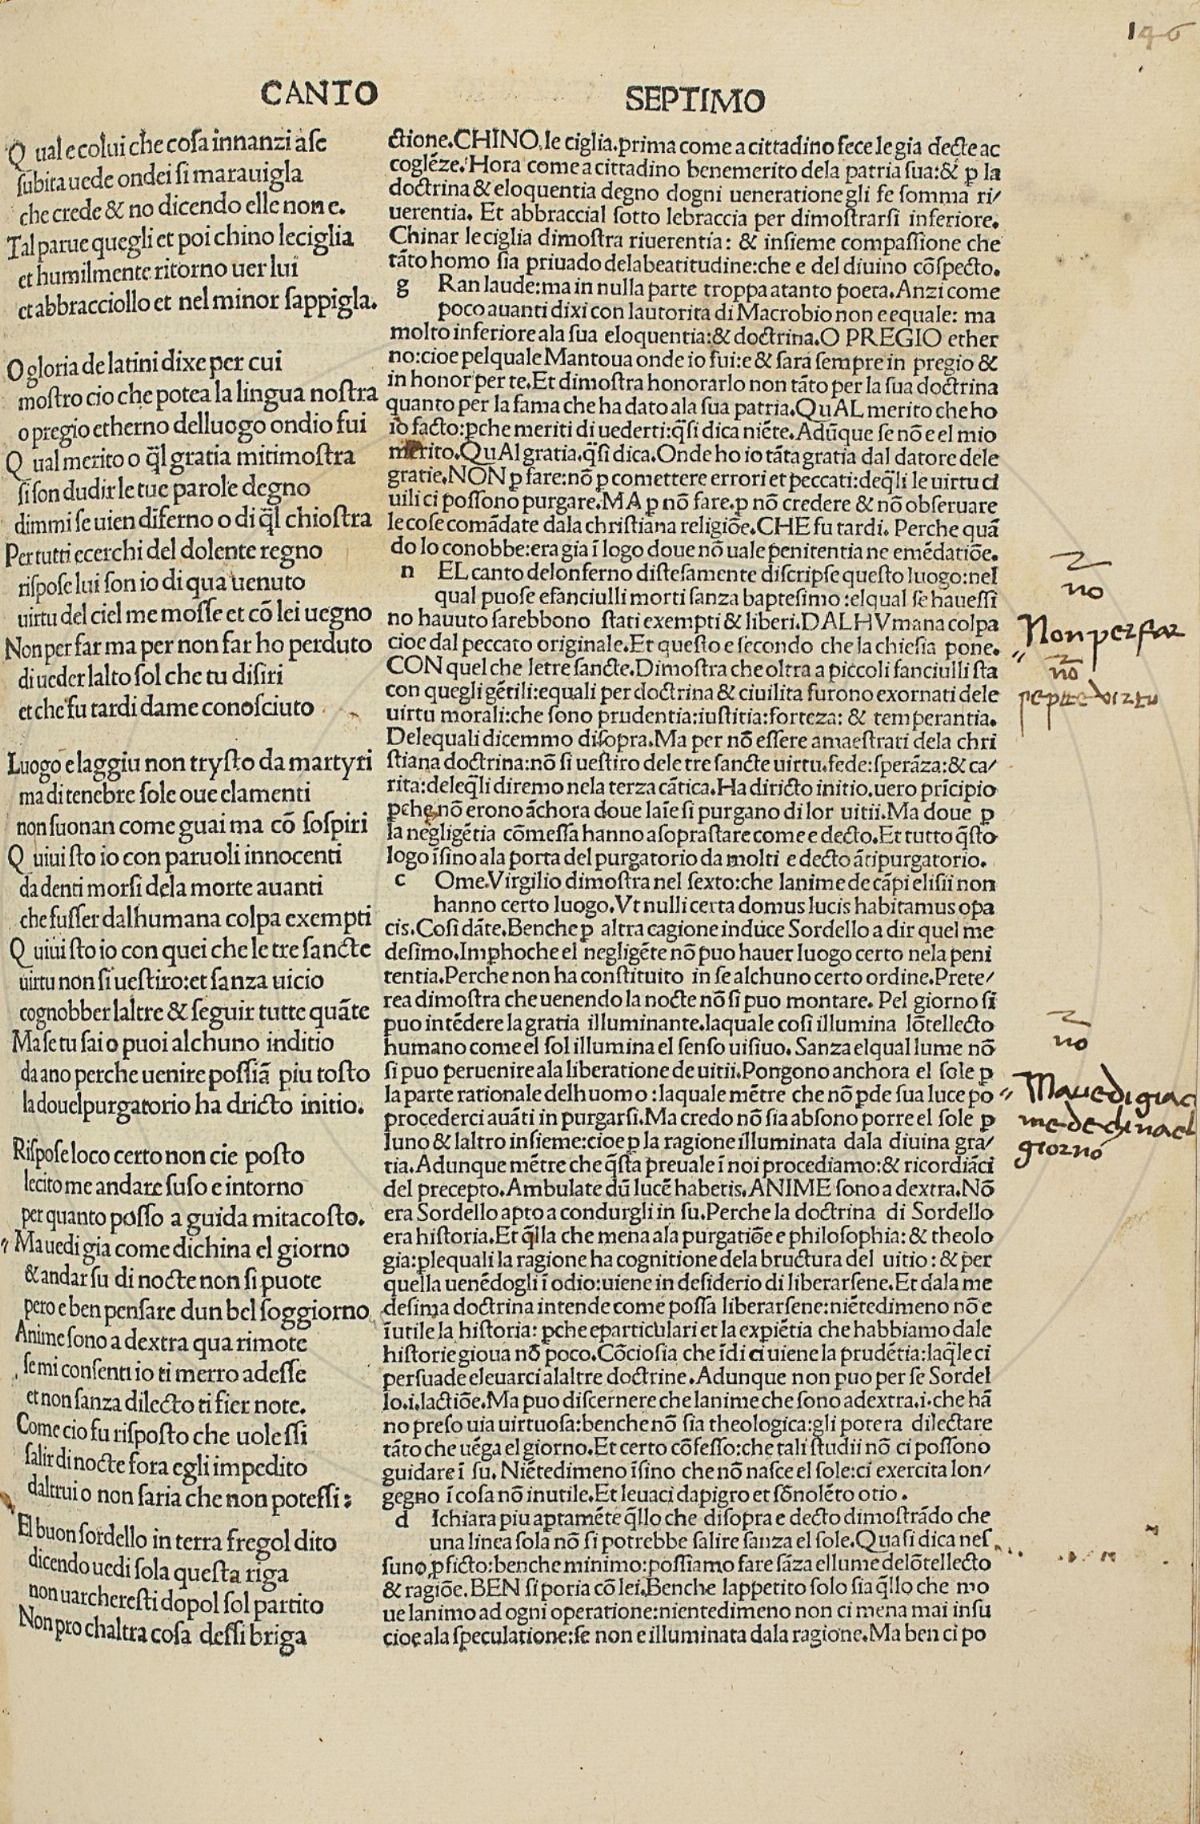 146
CANTO SEPTIMO
Qual e colui che coſa innanzi a ſe
ſubita uede ondei ſi marauigla
che crede & no dicendo elle non e.
Tal parue quegli et poi chino leciglia
et humilmente ritorno uer lui
et abbracciollo et nel minor ſappigla.
O gloria de latini dixe per cui
moſtro cio che potea la lingua noſtra
o pregio etherno delluogo ondio fui
Qual merito o q̄l gratia mitimoſtra
ſi ſon dudir le tue parole degno
dimmi ſe uien diferno o di q̄l chioſtra
Per tutti ecerchi del dolente regno
riſpoſe lui ſon io di qua uenuto
uirtu del ciel me moſſe et cō lei uegno
Non per far ma per non far ho perduto
di ueder lalto ſol che tu diſiri
et che fu tardi dame conoſciuto
Luogo e laggiu non tryſto da martyri
ma di tenebre ſole oue elamenti
non ſuonan come guai ma cō ſoſpiri
Quiui ſto io con paruoli innocenti
da denti morſi dela morte auanti
che fuſſer dalhumana colpa exempti
Quiui ſto io con quei che le tre ſancte
uirtu non ſi ueſtiro: et ſanza uicio
cognobber laltre & ſeguir tutte quāte
Ma ſe tu ſai o puoi alchuno inditio
da ano perche uenire poſſiā piu toſto
la douel purgatorio ha dricto initio.
Riſpoſe loco certo non cie poſto
lecito me andare ſuſo e intorno
per quanto poſſo a guida mitacoſto.
Ma uedi gia come dichina el giorno
& andar ſu di nocte non ſi puote
pero e ben penſare dun bel ſoggiorno
Anime ſono a dextra qua rimote
ſe mi conſenti io ti merro adeſſe
et non ſanza dilecto ti fier note.
Come cio fu riſpoſto che uoleſſi
ſalir di nocte fora egli impedito
daltrui o non ſaria che non poteſſi:
El buon ſordello in terra fregol dito
dicendo uedi ſola queſta riga
non uarchereſti dopol ſol partito
Non pro chaltra coſa deſſi briga
ctione. CHINO. le ciglia. prima come a cittadino fece le gia decte ac
coglēze. Hora come a cittadino benemerito dela patria ſua: & ꝑ la
doctrina & eloquentia degno dogni ueneratione gli fe ſomma ri/
uerentia. Et abbraccial ſotto lebraccia per dimoſtrarſi inferiore.
Chinar le ciglia dimoſtra riuerentia: & inſieme compaſſione che
tāto homo ſia priuado dela beatitudine: che e del diuino cōſpecto.
g Ran laude: ma in nulla parte troppa atanto poeta. Anzi come
poco auanti dixi con lautorita di Macrobio non e equale: ma
molto inferiore ala ſua eloquentia: & doctrina. O PREGIO ether
no: cioe pel quale Mantoua onde io fui: e & ſara ſempre in pregio &
in honor per te. Et dimoſtra honorarlo non tāto per la ſua doctrina
quanto per la fama che ha dato ala ſua patria. QuAL merito che ho
io facto: ꝑche meriti di uederti: q̄ſi dica niēte. Adūque ſe nō e el mio
merito. QuAl gratia. q̄ſi dica. Onde ho io tāta gratia dal datore dele
gratie. NON ꝑ fare: nō ꝑ cometter errori et peccati: deq̄li le uirtu ci
uili ci poſſono purgare. MA ꝑ nō fare. ꝑ nō credere & nō obſeruare
le coſe comādate dala chriſtiana religiōe. CHE fu tardi. Perche quā
do lo conobbe: era gia ī logo doue nō uale penitentia ne emēdatiōe.
n EL canto delonferno diſteſamente diſcripſe queſto luogo: nel
qual puoſe efanciulli morti ſanza bapteſimo: el qual ſe haueſſi
no hauuto ſarebbono ſtati exempti & liberi. DALHVmana colpa
cioe dal peccato originale. Et queſto e ſecondo che la chieſia pone.
CON quel che letre ſancte. Dimoſtra che oltra a piccoli fanciulli ſta
con quegli gētili: equali per doctrina & ciuilita furono exornati dele
uirtu morali: che ſono prudentia: iuſtitia: forteza: & temperantia.
Delequali dicemmo diſopra. Ma per nō eſſere amaeſtrati dela chri
ſtiana doctrina: nō ſi ueſtiro dele tre ſancte uirtu. fede: ſperāza: & ca/
rita: deleq̄li diremo nela terza cātica. Ha diricto initio. uero pricipio
ꝑche nō erono āchora doue laīe ſi purgano di lor uitii. Ma doue ꝑ
la negligētia cōmeſſa hanno a ſopraſtare come e decto. Et tutto q̄ſto
logo iſino ala porta del purgatorio da molti e decto ātipurgatorio.
c Ome. Virgilio dimoſtra nel ſexto: che lanime de cāpi eliſii non
hanno certo luogo. Vt nulli certa domus lucis habitamus opa
cis. Coſi dāte. Benche ꝑ altra cagione induce Sordello a dir quel me
deſimo. Imphoche el negligēte nō puo hauer luogo certo nela peni
tentia. Perche non ha conſtituito in ſe alchuno certo ordine. Prete/
rea dimoſtra che uenendo la nocte nō ſi puo montare. Pel giorno ſi
puo intēdere la gratia illuminante. laquale coſi illumina lōtellecto
humano come el ſol illumina el ſenſo uiſiuo. Sanza elqual lume nō
ſi puo peruenire ala liberatione de uitii. Pongono anchora el ſole ꝑ
la parte rationale delhuomo: laquale mētre che nō ꝑde ſua luce po
procederci auāti in purgarſi. Ma credo nō ſia abſono porre el ſole ꝑ
luno & laltro inſieme: cioe ꝑ la ragione illuminata dala diuina gra/
tia. Adunque mētre che q̄ſta preuale ī noi procediamo: & ricordiāci
del precepto. Ambulate dū lucē habetis. ANIME ſono a dextra. Nō
era Sordello apto a condurgli in ſu. Perche la doctrina di Sordello
era hiſtoria. Et q̄lla che mena ala purgatiōe e philoſophia: & theolo
gia: ꝑlequali la ragione ha cognitione dela bructura del uitio: & per
quella uenēdogli ī odio: uiene in deſiderio di liberarſene. Et dala me
deſima doctrina intende come poſſa liberarſene: niētedimeno nō e
īutile la hiſtoria: ꝑche eparticulari et la expiētia che habbiamo dale
hiſtorie gioua nō poco. Cōcioſia che īdi ci uiene la prudētia: laq̄le ci
perſuade eleuarci alaltre doctrine. Adunque non puo per ſe Sordel
lo. i. lactiōe. Ma puo diſcernere che lanime che ſono adextra. i. che hā
no preſo uia uirtuoſa: benche nō ſia theologica: gli potera dilectare
tāto che uēga el giorno. Et certo cōfeſſo: che tali ſtudii nō ci poſſono
guidare ī ſu. Niētedimeno iſino che nō naſce el ſole: ci exercita lon/
gegno ī coſa nō inutile. Et leuaci dapigro et ſōnolēto otio.
d Ichiara piu aptamēte q̄llo che diſopra e decto dimoſtrādo che
una linea ſola nō ſi potrebbe ſalire ſanza el ſole. Quaſi dica neſ
ſuno ꝓficto: benche minimo: poſſiamo fare ſāza el lume delōtellecto
& ragiōe. BEN ſi poria cō lei. Benche lappetito ſolo ſia q̄llo che mo
ue lanimo ad ogni operatione: nientedimeno non ci mena mai inſu
cioe ala ſpeculatione: ſe non e illuminata dala ragione. Ma ben ci po
no
Non per far
no
no
Ma vedi gia co
me dechina el
giorno